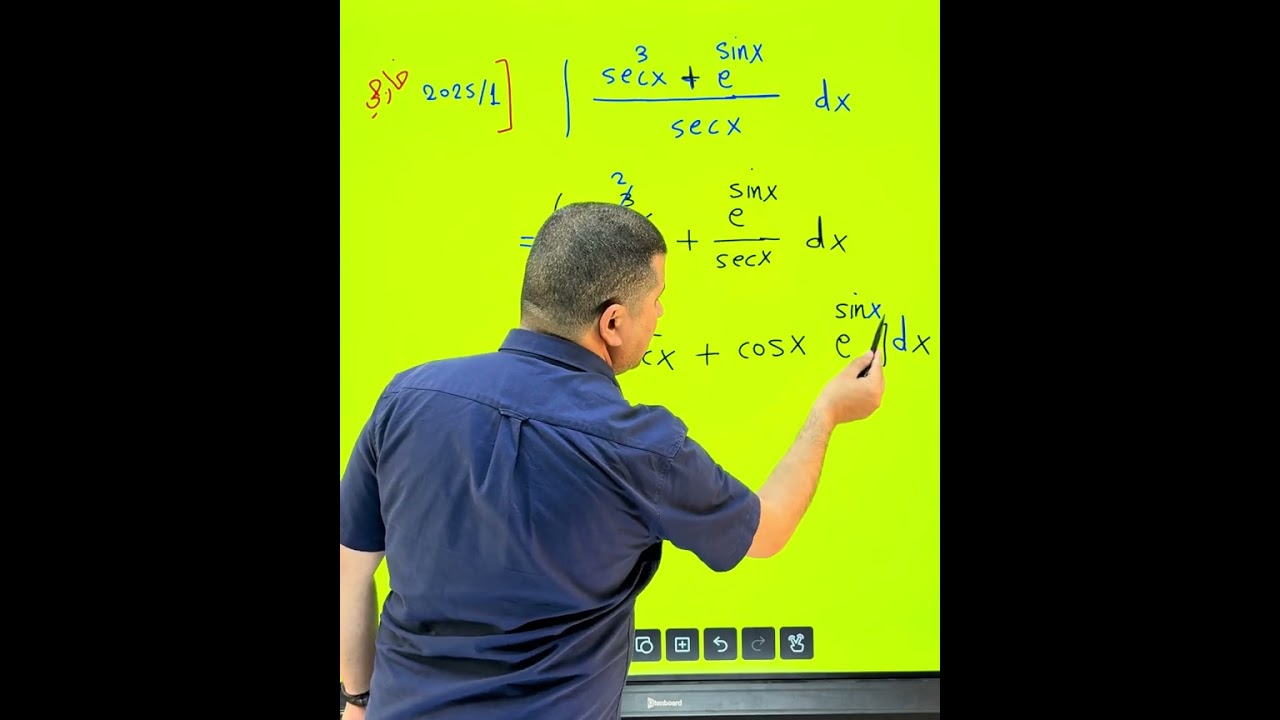 خارجي 2025/1] ∫ (sec³x + e^sinx) / secx dx
= 2 3 + e^sinx / secx dx
cx + cosx e^sinx] dx